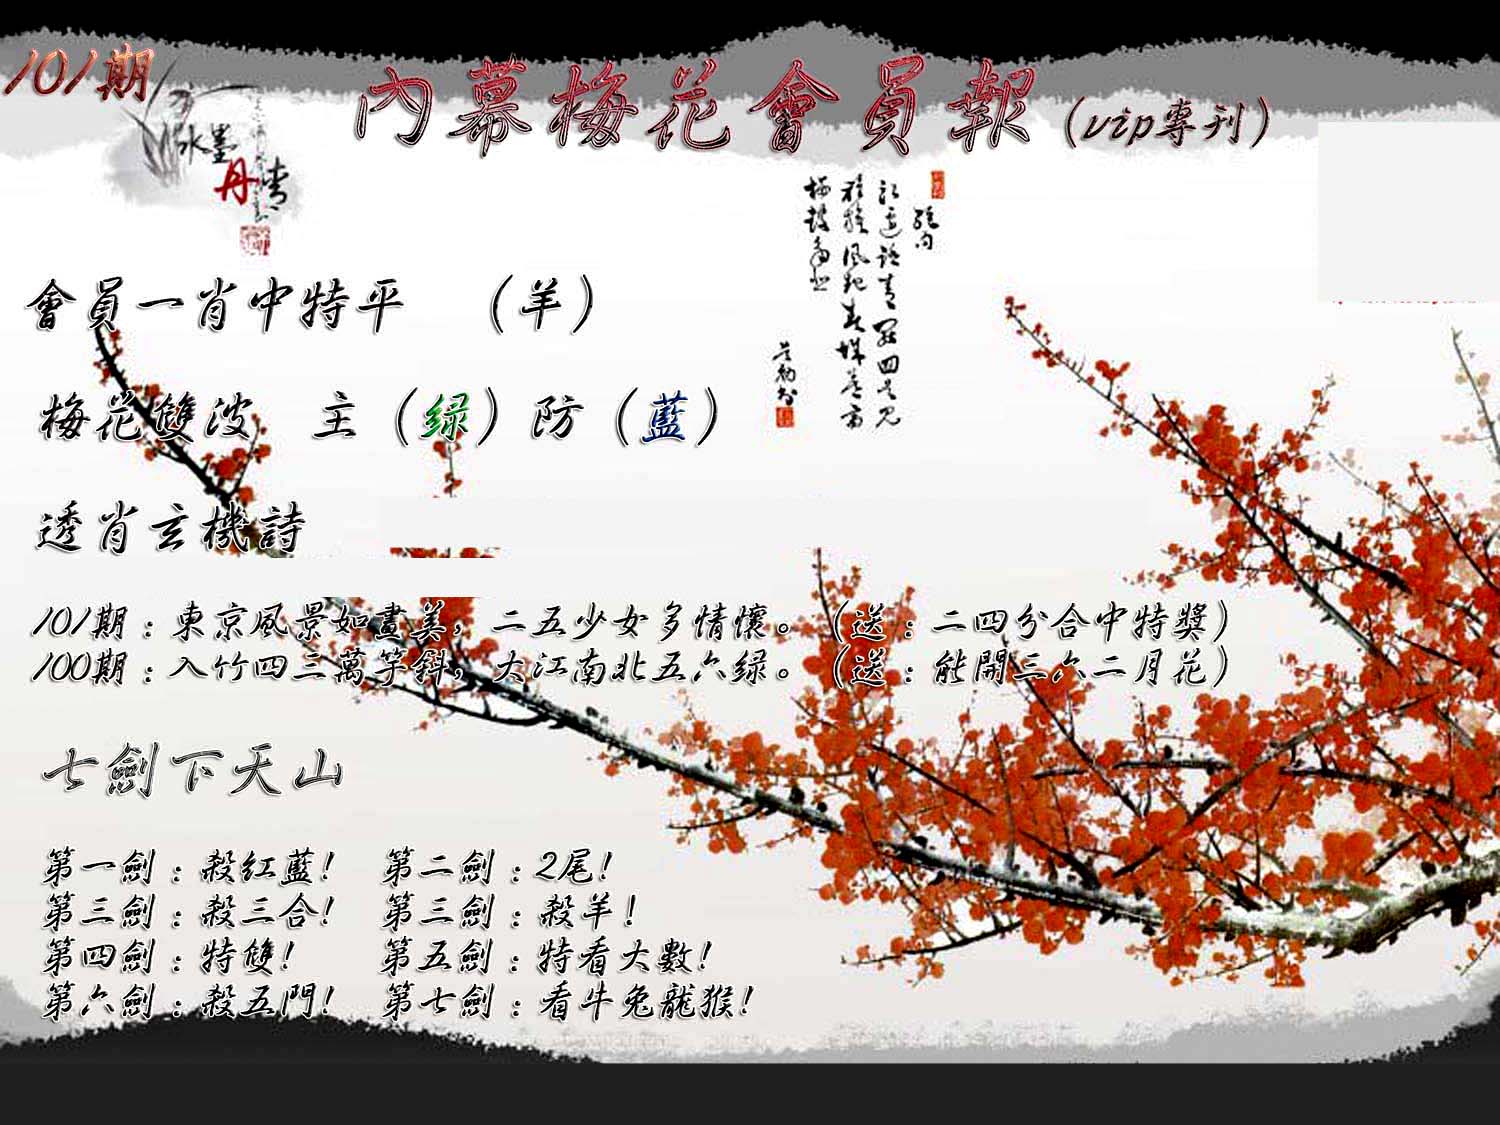 101期
內幕梅花會員報(vip專刊)
水墨
丹青
會員一肖中特平 (羊)
梅花雙波 主(绿)防(藍)
透肖玄機詩
101期:東京風景如畫美,二五少女多情懷。(送:二四分合中特獎)
100期:入竹四三萬竿斜,大江南北五六绿。(送:能開三六二月花)
七劍下天山
第一劍:殺紅藍! 第二劍:2尾!
第三劍:殺三合! 第三劍:殺羊!
第四劍:特雙! 第五劍:特看大數!
第六劍:殺五門! 第七劍:看牛兔龍猴!